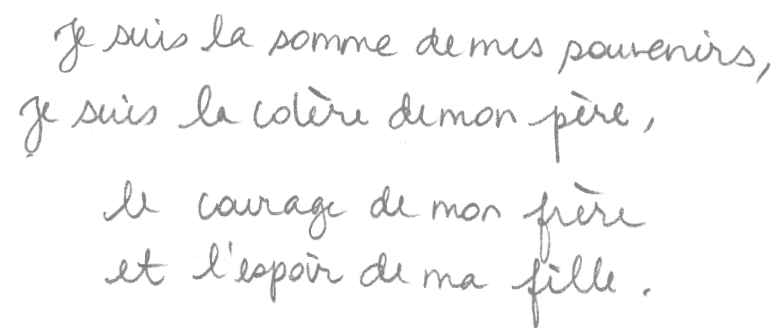 Je suis la somme de mes souvenirs,
je suis la colère de mon père,
le courage de mon frère
et l'espoir de ma fille.